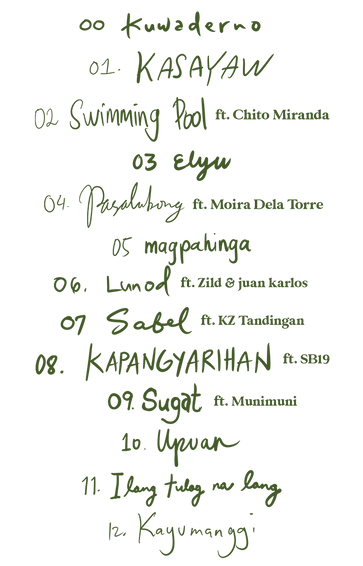 00 Kuwaderno
01. KASAYAW
02 Swimming Pool ft. Chito Miranda
03 Elyu
04. Pasalubong ft. Moira Dela Torre
05 magpahinga
06. Lunod ft. Zild & juan karlos
07 Sabel ft. KZ Tandingan
08. KAPANGYARIHAN ft. SB19
09. Sugat ft. Munimuni
10. Upuan
11. Ilang tulog na lang
12. Kayumanggi